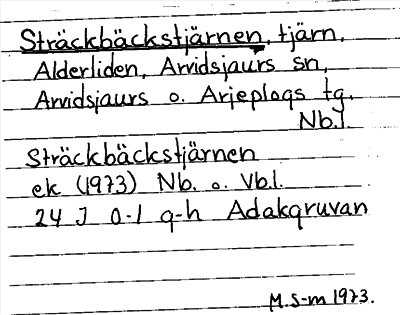 Sträckbäckstjärnen, tjärn,
Alderliden, Arvidsjaurs sn,
Arvidsjaurs o. Arjeplogs tg.
Nb.l.
Sträckbäckstjärnen
ek (1973) Nb. o. Vb.l.
24 J 0-1 g-h Adakgruvan
M.S-m 1973.